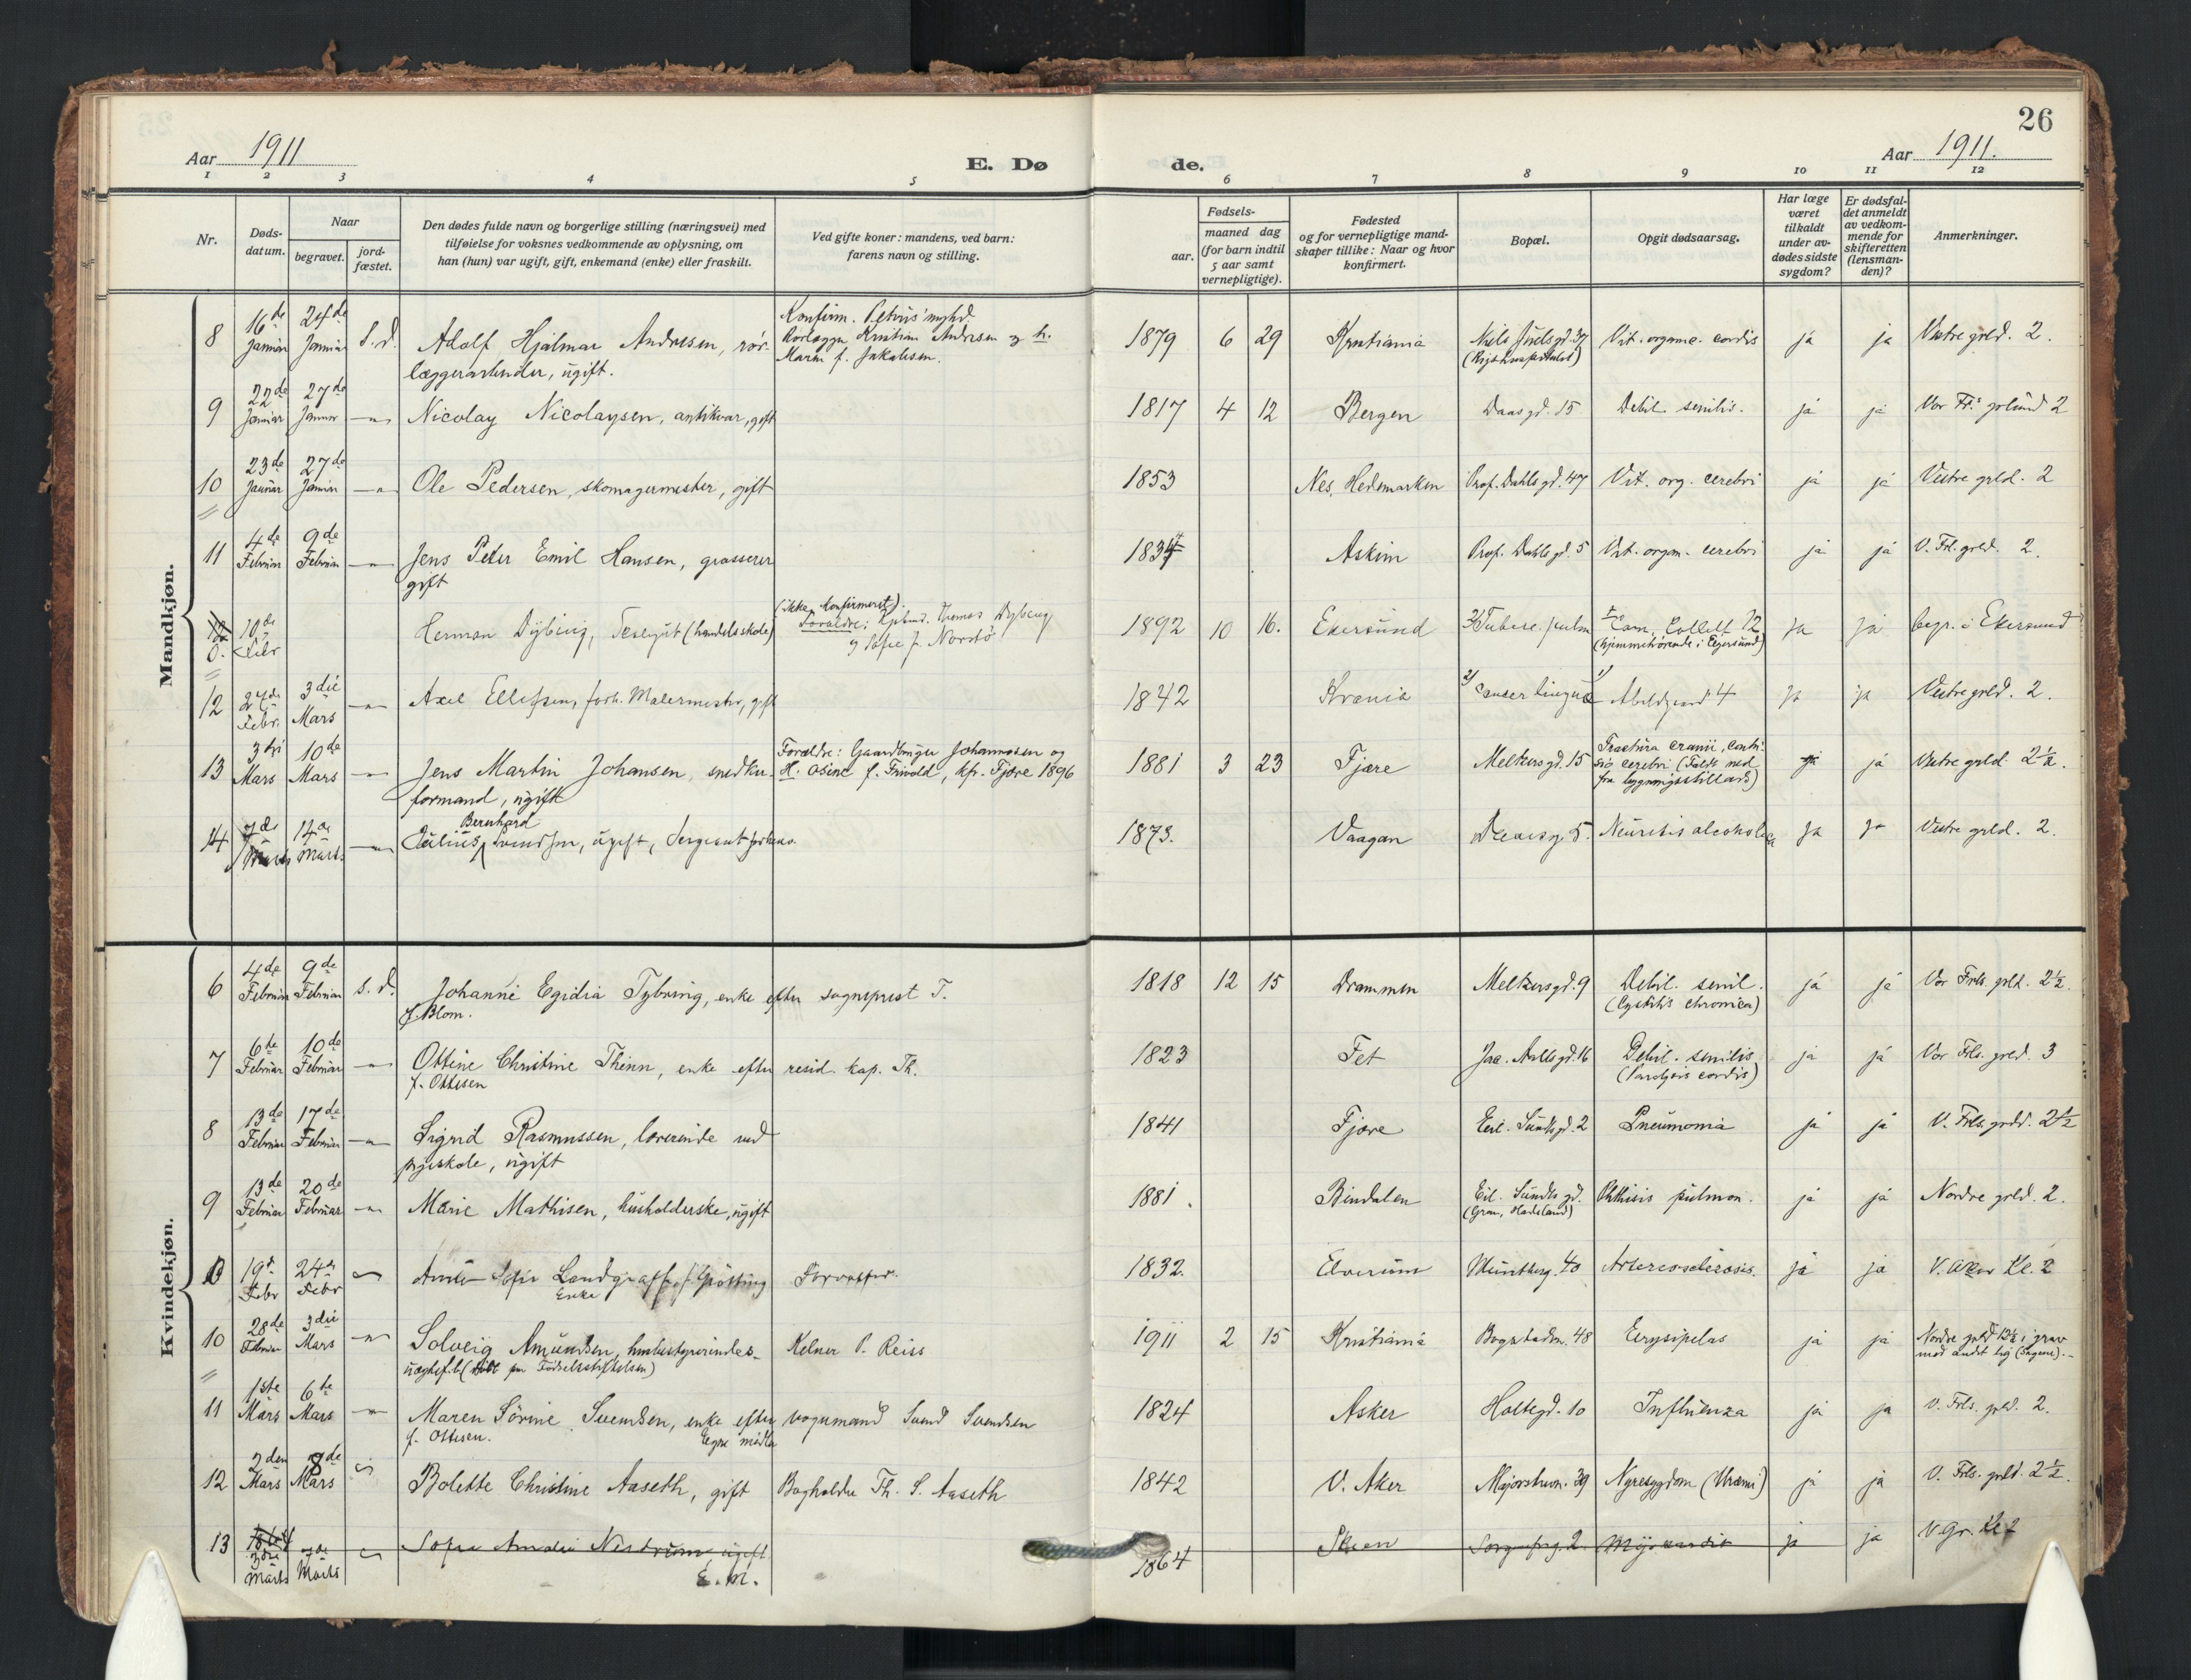 26
Aar 1911
E. Dø de.
Aar 1911.
1 2 3 4 5 6 7 8 9 10 11 12
Nr.
Døds-datum.
Naar
begravet.
jord-fæstet.
Den dødes fulde navn og borgerlige stilling (næringsvei) med
tilføielse for voksnes vedkommende av oplysning, om
han (hun) var ugift, gift, enkemand (enke) eller fraskilt.
Ved gifte koner: mandens, ved barn:
farens navn og stilling.
Fødsels-
aar.
maaned dag
(for barn indtil
5 aar samt
vernepligtige).
Fødested
og for vernepligtige mand-
skaper tillike: Naar og hvor
konfirmert.
Bopæl.
Opgit dødsaarsag.
Har læge
været
tilkaldt
under av-
dødes sidste
sygdom?
Er dødsfal-
det anmeldt
av vedkom-
mende for
skifteretten
(lensman-
den)?
Anmerkninger.
Mandkjøn.
8 16de Januar 24de Januar s. d. Adolf Hjalmar Andresen, rør-
læggerarbeider, ugift.
Konfirm. Petrus' mghd.
Rørlægger Kristian Andresen og h.
Maren f. Jakobsen.
1879 6 29 Kristiania Niels Juelsgd. 37 Vit. organic. cordis ja ja Vestre grld. 2.
(Rigshospitalet)
9 22de Januar 27de Januar Nicolay Nicolaysen, antikvar, gift 1817 4 12 Bergen Daasgd. 15 Debil. senilis. ja ja Vor Frs grlund 2
10 23de Januar 27de Januar Ole Pedersen, skomagermester, gift 1853 Nes, Hedemarken Prof. Dahls gd. 47 Vit. org. cerebri ja ja Vestre grld. 2
11 4de Februar 9de Februar Jens Peter Emil Hansen, grosserer
gift
1834 Askim Prof. Dahls gd. 5 Vit. organ. cerebri ja ja V. Frl. grld. 2.
0. 10de Febr Herman Dybing, (handelsskole)
(ikke konfirmeret).
Forældre: Thomas Dybing
1892 10 16. Ekersund Tuberc. pulm Cam. Collett 12 ja ja begr. i Ekersund
(hjemmehørende i Egersund)
12 27de Febr. 3die Mars Axel Ellefsen, forh. Malermester, gift 1842 Krania 2) Cancer linguæ 1) Abeldgaard 4 ja ja Vestre grld. 2.
13 3die Mars 10de Mars Jens Martin Johansen, snedker-
formand, ugift
Forældre: Gaardbruger Johannesen og
H. Osine f. Frivold, kfr. Fjære 1896
1881 3 23 Fjære Melkersgd. 15 Fractura cranii, contu-
sio cerebri (Faldt ned
fra bygningsstillads)
ja ja Vestre grld. 2½.
14 7de Marts 14de Marts Julius Bernhard Svendsen, ugift, Sergeant
1873. Vaagan 5. Neuritis alcoholica ja ja Vestre grld. 2.
Kvindekjøn.
6 4de Februar 9de Februar s. d. Johanne Egidia Tybring, enke efter sogneprest T.
f. Blom.
1818 12 15 Drammen Melkersgd. 9 Debil. senil. ja ja Vor Frels. grld. 2½.
(Cystitis chronica)
7 6te Februar 10de Februar Ottine Christine Thinn, enke efter resid. kap. Th.
f. Ottesen
1823 Fet Jac. Aalls gd. 16 Debil. senilis ja ja Vor Frls. grld. 3
(Paralysis cordis)
8 13de Februar 17de Februar Sigrid Rasmussen, lærerinde ved
pigeskole, ugift
1841 Fjære Eil. Sundts gd. 2 Pneumonia ja ja V. Frls. grld. 2½
9 13de Februar 20de Februar Marie Mathisen, husholderske, ugift 1881. Bindalen Eil. Sundts gd. Phthisis pulmon. ja ja Nordre grld. 2.
(Gran, Hadeland)
19de Febr 24de Febr Sofie Landgraff f. Grøtting Forvalter.
Enke
1832. Elverum Munthesg. 40 Arteriosclerosis. ja ja V. Aker Kl. 2
10 28de Februar 3die Mars Solveig Amundsen, husbestyrerindes
uægte f. b (Født par Fødselsstiftelsen)
Kelner P. Reiss
1911 2 15 Kristiania Bogstadvn. 48 Erysipelas ja ja Nordre grld 12½ i grav
med andet lig
11 1ste Mars 6te Mars Maren Sørine Svendsen, enke efter vognmand Svend Svendsen
f. Ottesen. Egne midler
1824 Asker Holtegd. 10 Influenza ja ja V. Frls. grld. 2.
12 2den Mars 8de Mars Bolette Christine Aaseth, gift Bogholder Th. S. Aaseth 1842 V. Aker Majorstuvn. 39 Nyresygdom (Uræmi) ja ja V. Frls. grld. 2½.
13 3die Marts Marts Sofie Amalie Nerdrum, ugift.
E. M.
1864 Skien Sorgenfrig. 2 Myocardit ja ja V. Gr. Kl 2